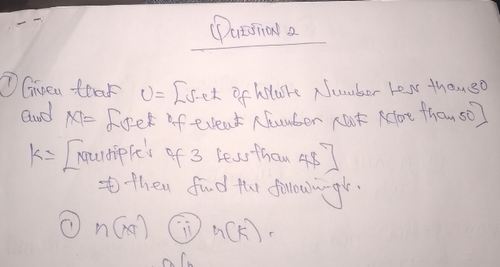 QUESTION 2
① Given that U = [set of whole Number Less than 50
and M = [set of event Number Not More than 50]
K = [Multiple's of 3 Less than 48]
⇒ then find the followings.
① n(M) ⑪ n(K).